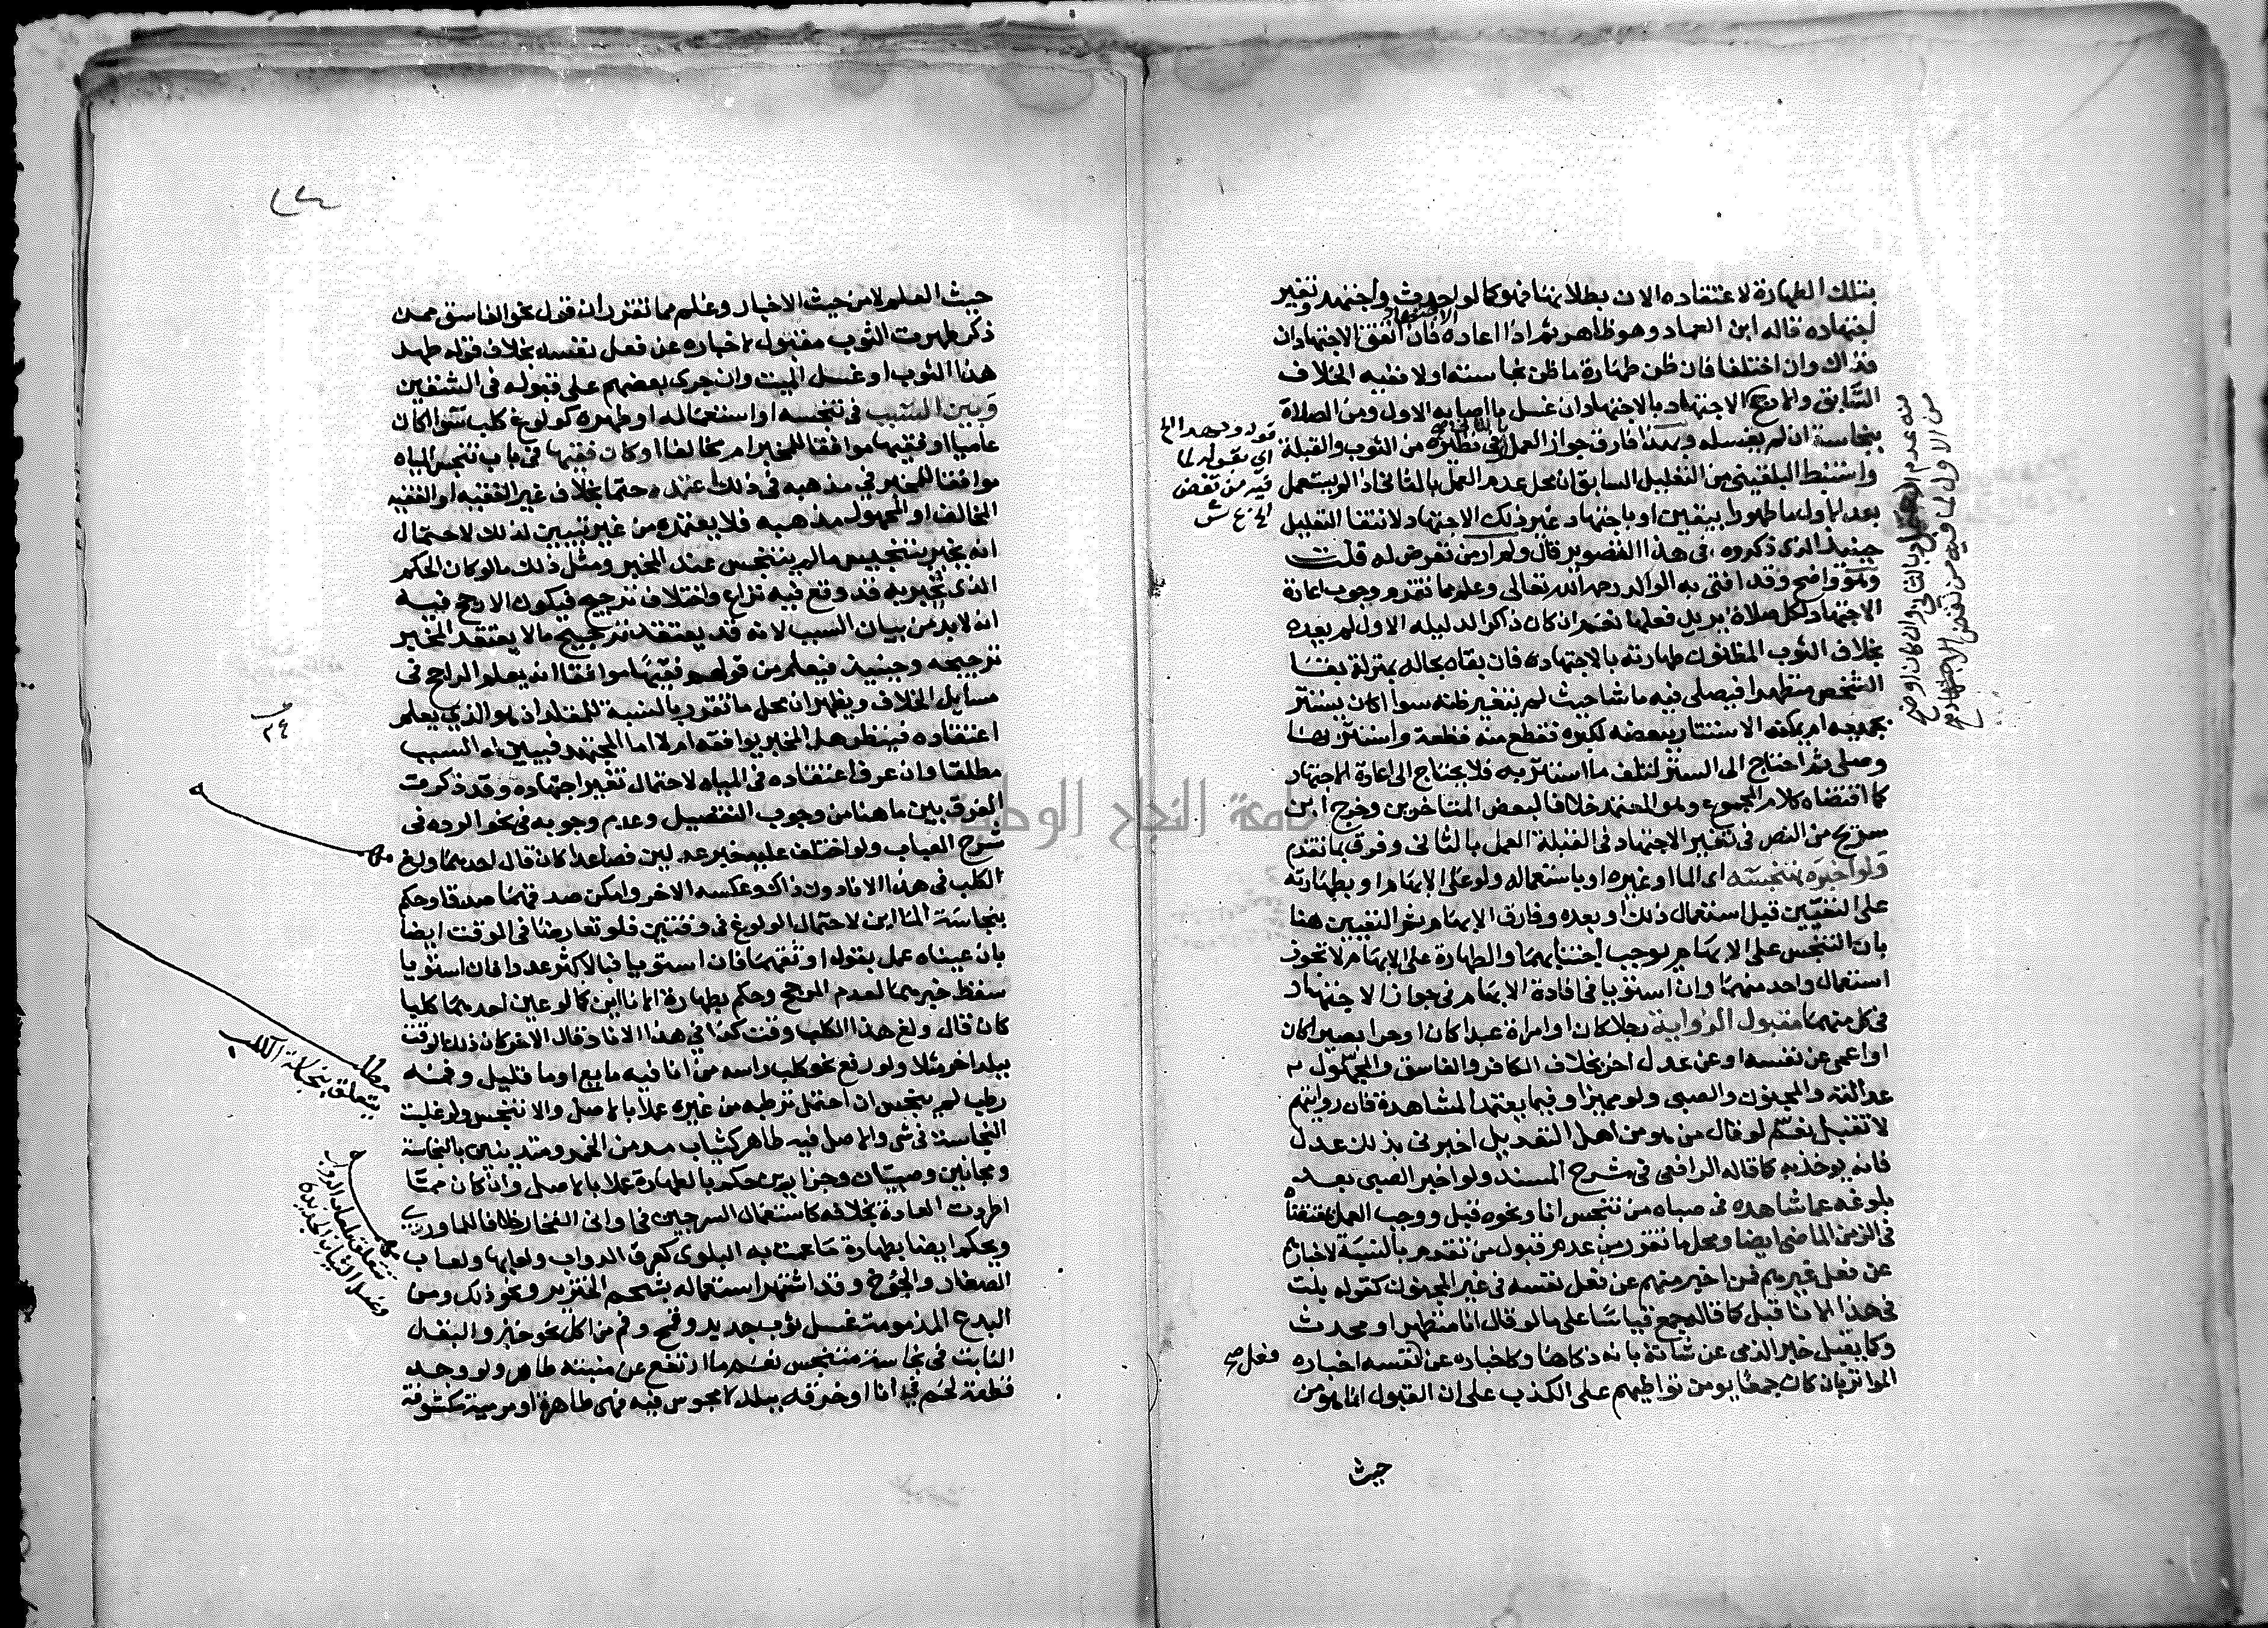 بتلك الطهارة لاعتقاده الان بطلانها فهو كما لو احدث واجتهد وتغير
اجتهاده قاله ابن العماد وهو ظاهر ثم اذا اعاد الاجتهاد فان اتفق الاجتهادان
فذاك وان اختلفا فان ظن طهارة ما ظن نجاسته اولا ففيه الخلاف
السابق والا نقض الاجتهاد بالاجتهاد ان غسل ما اصابه الاول ومن الصلاة
بنجاسة ان لم يغسله وبهذا فارق جواز العمل بالثاني في نظيره من الثوب والقبلة
واستنبط البلقيني من التعليل السابق ان محل عدم العمل بالثاني اذا لم يستعمل
بعد الاول ما طهورا بيقين او باجتهاد غير ذلك الاجتهاد لانتفا التعليل
حينئذ الذي ذكروه في هذا التصوير قال ولم ار من تعرض له قلت
وهو واضح وقد افتى به الوالد رحمه الله تعالى وعلم مما تقدم وجوب اعادة
الاجتهاد لكل صلاة يريد فعلها نعم ان كان ذاكرا لدليله الاول لم يعده
بخلاف الثوب المظنون طهارته بالاجتهاد فان بقاه بحاله بمنزلة بقا
الشخص متطهرا فيصلي فيه ما شا حيث لم يتغير ظنه سوا اكان يستتر
بجميعه ام يمكنه الاستتار ببعضه لكبره فقطع منه قطعة واستتر بها
وصلى ثم احتاج الى الستر لتلف ما استتر به فلا يحتاج الى اعادة الاجتهاد
كما اقتضاه كلام المجموع وهو المعتمد خلافا لبعض المتاخرين وخرج ابن
سريج من النص في تغير الاجتهاد في القبلة العمل بالثاني وفرق بما تقدم
ولو اخبره بتنجسه اي الما او غيره او باستعماله ولو على الابهام او بطهارته
على التعيين قبل استعمال ذلك او بعده وفارق الابهام ثم التعيين هنا
بان التنجس على الابهام يوجب اجتنابهما والطهارة على الابهام لا تجوز
استعمال واحد منهما وان استويا في افادة الابهام في جواز الاجتهاد
في كل منهما مقبول الرواية رجلا كان او امراة عبدا كان او حرا بصيرا كان
او اعمى عن نفسه او عن عدل اخر بخلاف الكافر والفاسق والمجهول
عدالته والمجنون والصبي ولو مميزا وفيما يعتمد المشاهدة فان روايتهم
لا تقبل نعم لو قال من هو من اهل التعديل اخبرني بذلك عدل
فانه يوخذ به كما قاله الرافعي في شرح المسند ولو اخبر الصبي بعد
بلوغه عما شاهده في صباه من تنجس انا ونحوه قبل ووجب العمل بمقتضاه
في الزمن الماضي ايضا ومحل ما تقرر من عدم قبول من تقدم بالنسبة لاخباره
عن فعل غيرهم فمن اخبر منهم عن فعل نفسه في غير المجنون كقوله بلت
في هذا الانا قبل كما قاله جمع قياسا على ما لو قال انا متطهر او محدث
وكما يقبل خبر الذمي عن شاته بانه ذكاها وكاخباره عن فعل نفسه اخباره
المواتر بان كان جمعا يومن تواطيهم على الكذب على ان القبول انما هو من
حيث
قوله وبهذا الخ
اي بقوله لما
فيه من نقض
الخ ع ش
منه عدم العمل بالثاني وان كان اوضح
من الاول لما فيه من نقض الاجتهاد ع
فعل صح
٢٤
حيث العلم لا من حيث الاخبار وعلم مما تقرر ان قول نحو الفاسق ممن
ذكر طهرت الثوب مقبول لاخباره عن فعل نفسه بخلاف قوله طهر
هذا الثوب او غسل الميت وان جرى بعضهم على قبوله في الشقين
وبين السبب في تنجسه او استعماله او طهره كولوغ كلب سوا اكان
عاميا او فقيها موافقا للمخبر ام مخالفا او كان فقيها في باب تنجس المياه
موافقا للمخبر في مذهبه في ذلك اعتمده حتما بخلاف غير الفقيه او الفقيه
المخالف او المجهول مذهبه فلا يعتمده من غير تبيين لذلك لاحتمال
انه يخبر بتنجيس ما لم يتنجس عند المخبر ومثل ذلك ما لو كان الحكم
الذي يخبر به قد وقع فيه نزاع واختلاف ترجيح فيكون الارجح فيه
انه لا بد من بيان السبب لانه قد يعتقد ترجيح ما لا يعتقد المخبر
ترجيحه وحينئذ فيعلم من قولهم فقيها موافقا انه يعلم الراجح في
مسايل الخلاف ويظهر ان محل ما تقرر بالنسبة للمقلد اذ هو الذي يعلم
اعتقاده فينظر هل المخبر يوافقه ام لا اما المجتهد فيبين له السبب
مطلقا وان عرف اعتقاده في المياه لاحتمال تغير اجتهاده وقد ذكرت
الفرق بين ما هنا من وجوب التفصيل وعدم وجوبه في نحو الرده في
شرح العباب ولو اختلف عليه خبر عدلين فصاعدا كان قال احدهما ولغ
الكلب في هذا الانا دون ذاك وعكسه الاخر وامكن صدقهما صدقا وحكم
بنجاسة الماين لاحتمال الولوغ في وقتين فلو تعارضا في الوقت ايضا
بان عيناه عمل بقول اوثقهما فان استويا فبالاكثر عددا فان استويا
سقط خبرهما لعدم المرجح وحكم بطهارة الاناين كما لو عين احدهما كلبا
كان قال ولغ هذا الكلب وقت كذا في هذا الانا وقال الاخر كان ذلك الوقت
ببلد اخر مثلا ولو رفع نحو كلب راسه من انا فيه مايع او ما قليل وفمه
رطب لم ينجس ان احتمل ترطبه من غيره عملا بالاصل والا تنجس ولو غلبت
النجاسة في شي والاصل فيه طاهر كثياب مدمن الخمر ومتدينين بالنجاسة
ومجانين وصبيان وجزارين حكم بالطهارة عملا بالاصل وان كان مما
اطردت العادة بخلافه كاستعمال السرجين في اواني الفخار خلافا للماوردي
ويحكم ايضا بطهارة ما عمت به البلوى كعرق الدواب ولعابها ولعاب
الصغار والجوخ وقد اشتهر استعماله بشحم الخنزير ونحو ذلك ومن
البدع المذمومة غسل ثوب جديد وقمح وفم من اكل نحو خبز والبقل
النابت في نجاسة متنجس نعم ما ارتفع عن منبته طاهر ولو وجد
قطعة لحم في انا او خرقه ببلد لا مجوس فيه فهي طاهرة او مرمية مكشوفة
مهمه
مطلب
يتعلق بنجاسة الكلب
مهمه
تتعلق بلعاب الدواب
وغسل الثياب الجديده